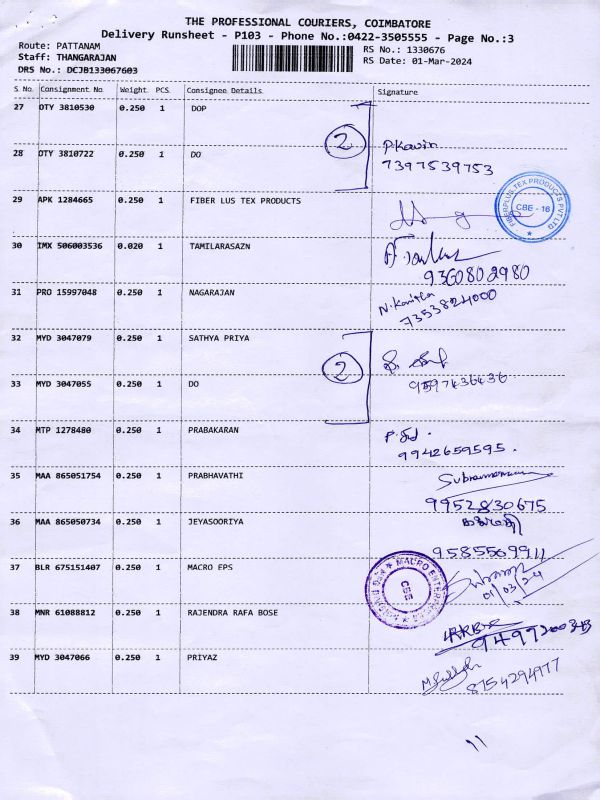 THE PROFESSIONAL COURIERS, COIMBATORE
Delivery Runsheet - P103 - Phone No.:0422-3505555 - Page No.:3
Route: PATTANAM
RS No.: 1330676
Staff: THANGARAJAN
RS Date: 01-Mar-2024
DRS No.: DCJB133067603
S.No. Consignment No Weight PCS Consignee Details Signature
27 OTY 3810530 0.250 1 DOP
2
P.Kavin
28 OTY 3810722 0.250 1 DO
7397539753
29 APK 1284665 0.250 1 FIBER LUS TEX PRODUCTS
FIBERPLUS TEX PRODUCTS PVT LTD
CBE - 16
30 IMX 506003536 0.020 1 TAMILARASAZN
9360802980
31 PRO 15997048 0.250 1 NAGARAJAN
N.Kavitha
7353824000
32 MYD 3047079 0.250 1 SATHYA PRIYA
2
33 MYD 3047055 0.250 1 DO
9597436436
34 MTP 1278480 0.250 1 PRABAKARAN
9942659595.
35 MAA 865051754 0.250 1 PRABHAVATHI
9952830675
36 MAA 865050734 0.250 1 JEYASOORIYA
9585569911
37 BLR 675151407 0.250 1 MACRO EPS
MACRO
CBE
01/03/24
38 MNR 61088812 0.250 1 RAJENDRA RAFA BOSE
39 MYD 3047066 0.250 1 PRIYAZ
8754294977
11